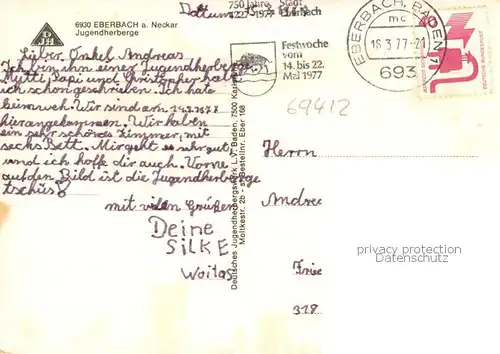 6930 EBERBACH a. Neckar
Jugendherberge
DJH
Dattum
750 Jahre Stadt
1227-1977 Eberbach
Festwoche
vom
14. bis 22.
Mai 1977
EBERBACH, BADEN
mc
16.3.77-21
693
40
69412
Lieber Onkel Andreas
Ich bin in einer Jugendherberge
Mutti, Papi und Christopher habe
ich schon geschrieben. Ich habe
heimweh. Wir sind am 14.3.1977
hier angekommen. Wir haben
ein sehr schönes Zimmer, mit
sechs Bett. Mir geht es sehr gut
und ich hoffe dir auch. Vorne
auf den Bild ist die Jugendherberge
tschüs
mit vielen Grüßen
Deine
SILKE
Woitas
Deutsches Jugendherbergswerk L.V. Baden, 7500 Karlsruhe
Moltkestr. 2b - Bestellnr. Eber 168
Herrn
Andrea
Frie
318
privacy protection
privacy protection